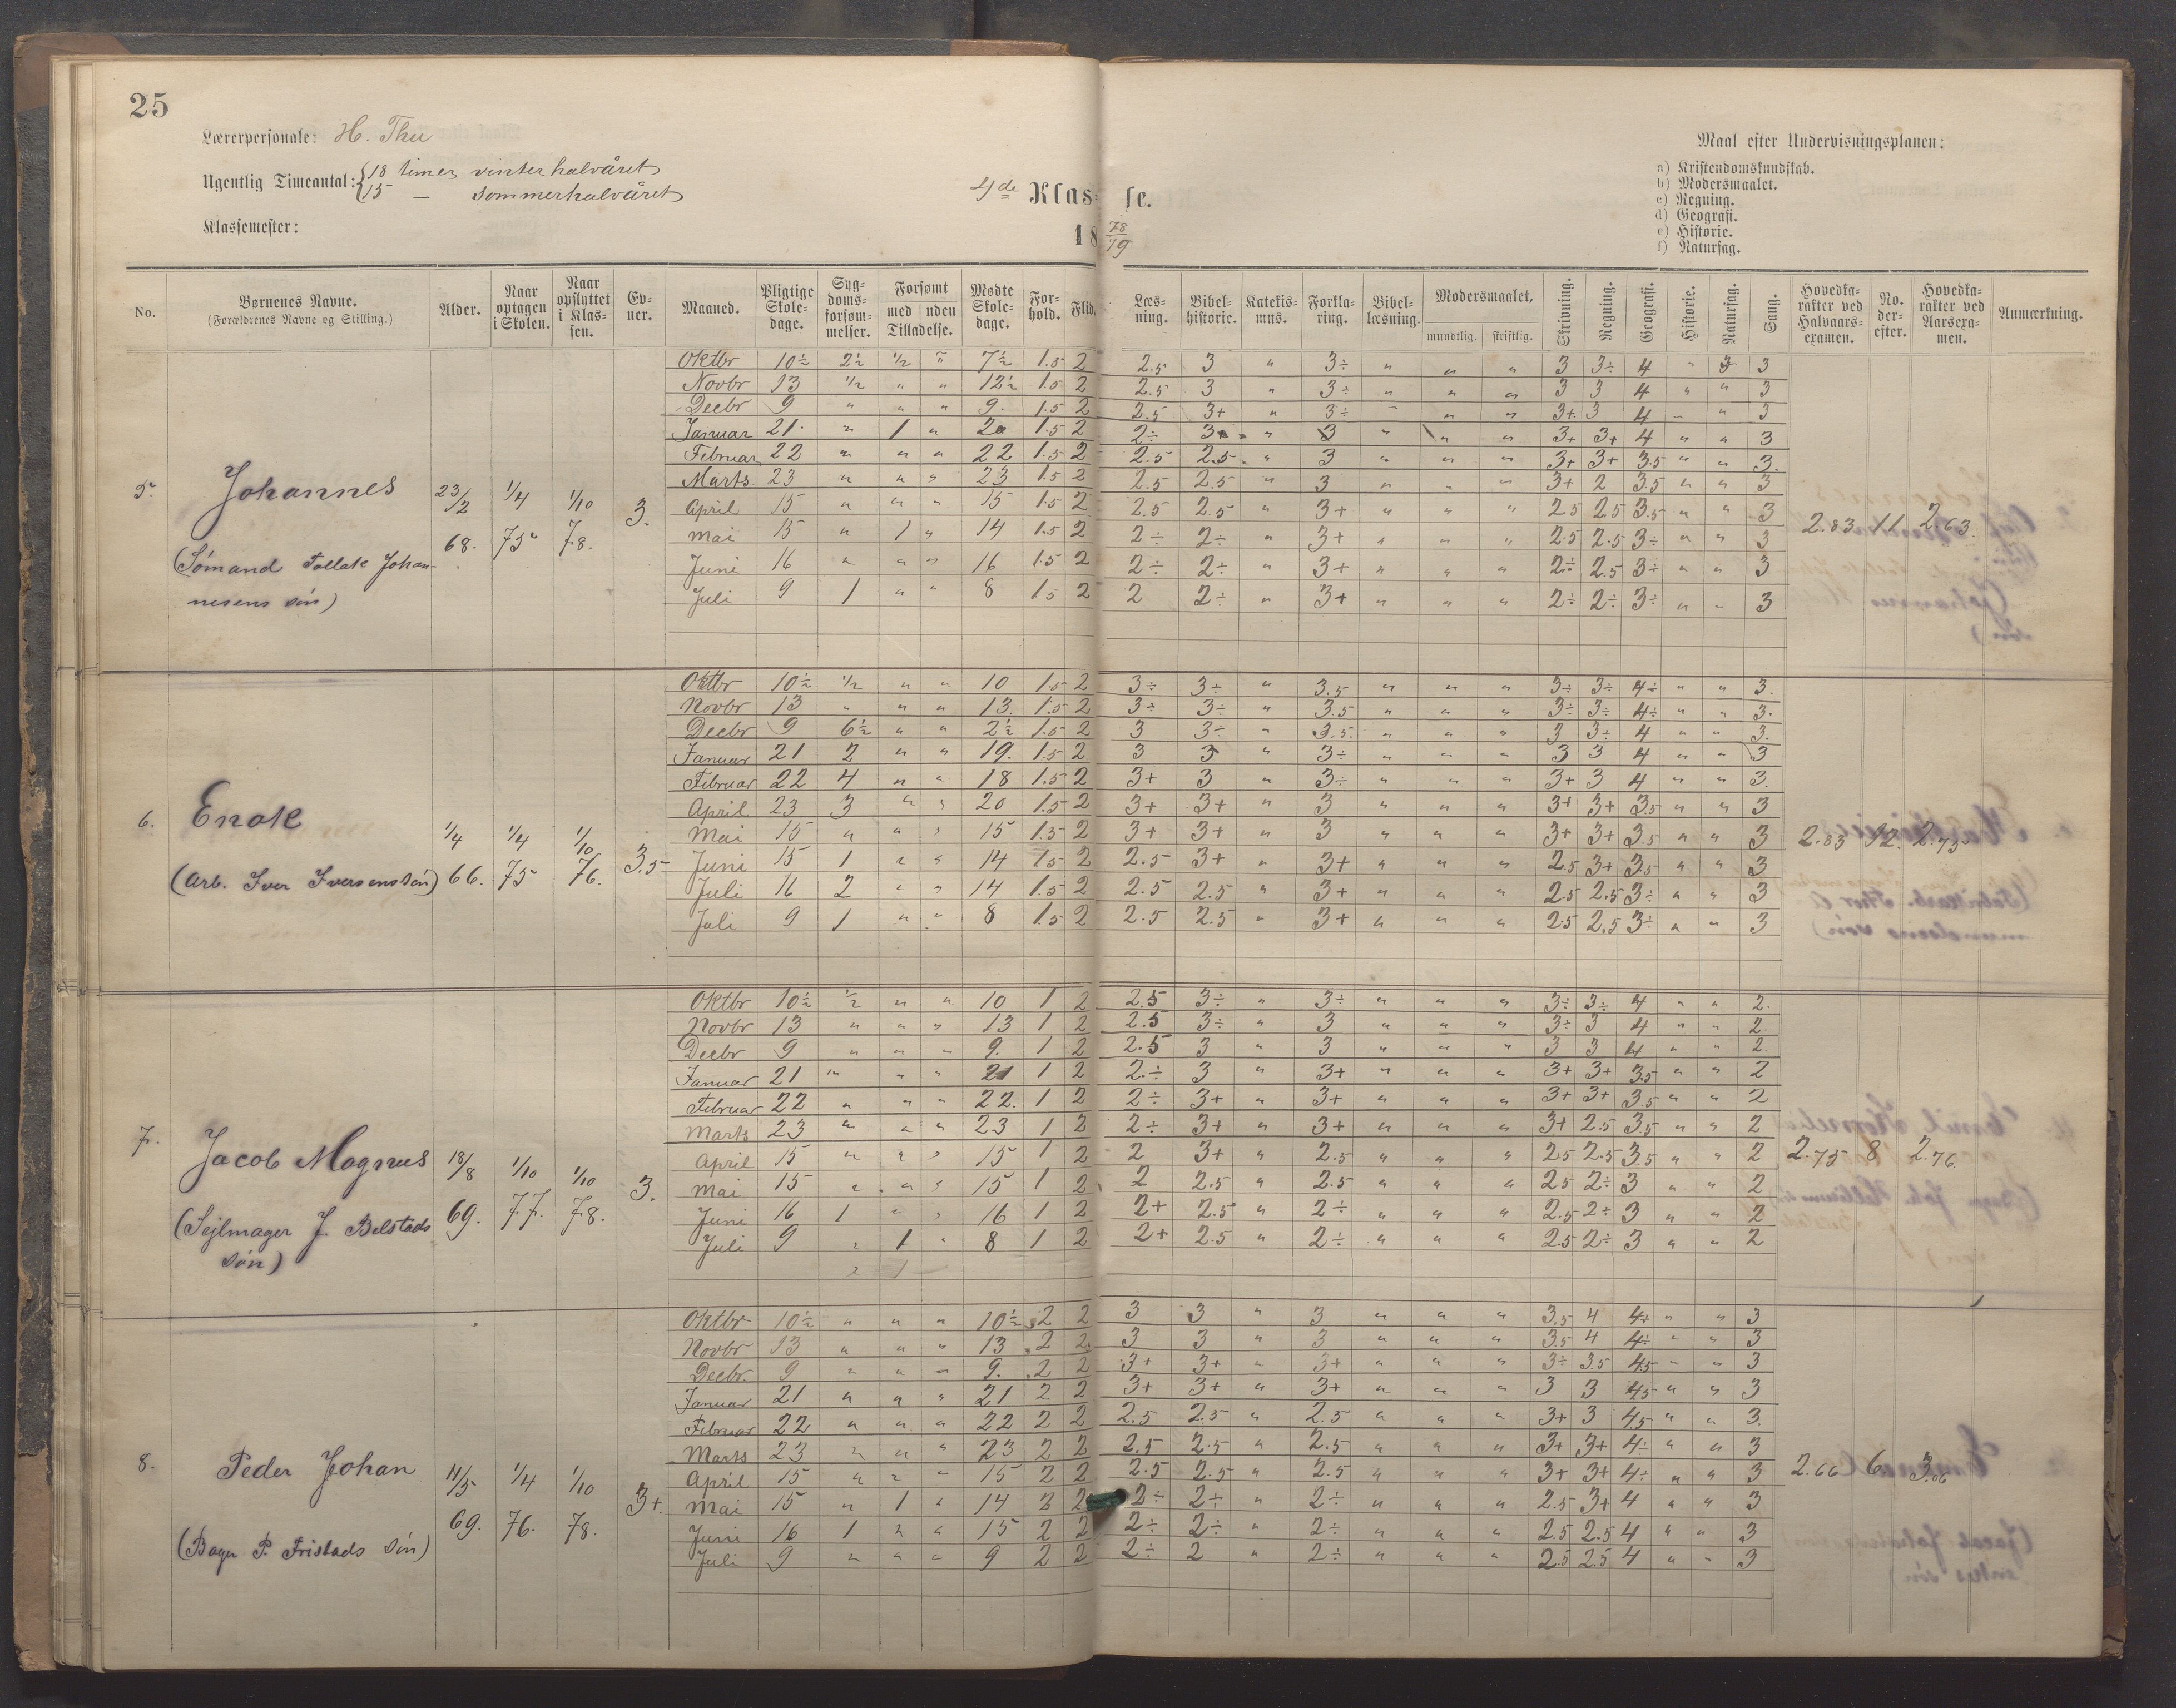 25
Lærerpersonale: H. Thu
Ugentlig Timeantal: {18 timer vinterhalvåret
{15 — sommerhalvåret
Klassemester:
4de Klasse.
1878/79
Maal efter Undervisningsplanen:
a) Kristendomskundskab.
b) Modersmaalet.
c) Regning.
d) Geografi.
e) Historie.
f) Naturfag.
No. | Børnenes Navne. (Forældrenes Navne og Stilling.) | Alder. | Naar optagen i Skolen. | Naar opflyttet i Klassen. | Evner. | Maaned. | Pligtige Skoledage. | Sygdomsforsømmelser. | Forsømt med Tilladelse. | uden Tilladelse. | Mødte Skoledage. | Forhold. | Flid. | Læsning. | Bibelhistorie. | Katekismus. | Forklaring. | Bibellæsning. | Modersmaalet, mundtlig. | skriftlig. | Skrivning. | Regning. | Geografi. | Historie. | Naturfag. | Sang. | Hovedkarakter ved Halvaarsexamen. | No. derefter. | Hovedkarakter ved Aarsexamen. | Anmærkning.
5. Johannes
(Sømand Tollak Johannesens søn)
23/2 68. 1/4 75 1/10 78. 3.
Oktbr 10½ 2½ ½ " 7½ 1.5 2 2.5 3 " 3÷ " " " 3 3÷ 4 " 3 3
Novbr 13 ½ " " 12½ 1.5 2 2.5 3 " 3÷ " " " 3 3 4 " " 3
Decbr 9 " " " 9. 1.5 2 2.5 3+ " 3÷ " " " 3+ 3 4 " " 3
Januar 21. " 1 " 20 1.5 2 2÷ 3+ " 3 " " " 3+ 3+ 4 " " 3
Februar 22 " " " 22 1.5 2 2.5 2.5 " 3 " " " 3+ 3+ 3.5 " " 3.
Marts 23 " " " 23 1.5 2 2.5 2.5 " 3 " " " 3+ 2 3.5 " " 3
April 15 " " " 15 1.5 2 2.5 2.5 " 3+ " " " 2.5 2.5 3.5 " " 3
Mai 15 " 1 " 14 1.5 2 2÷ 2÷ " 3+ " " " 2.5 2.5 3÷ " " 3
Juni 16 " " " 16 1.5 2 2÷ 2÷ " 3+ " " " 2÷ 2.5 3÷ " " 3
Juli 9 1 " " 8 1.5 2 2 2÷ " 3+ " " " 2÷ 2÷ 3÷ " " 3
2.83 11 2.63.
6. Enok
(Arb. Iver Iversens søn)
1/4 66. 1/4 75 1/10 76. 3.5
Oktbr 10½ ½ " " 10 1.5 2 3÷ 3÷ " 3.5 " " " 3÷ 3÷ 4÷ " " 3.
Novbr 13 " " " 13. 1.5 2 3÷ 3÷ " 3.5 " " " 3÷ 3÷ 4÷ " " 3.
Decbr 9 6½ " " 2½ 1.5 2 3 3÷ " 3.5 " " " 3 3÷ 4 " " 3.
Januar 21 2 " " 19. 1.5 2 3 3 " 3÷ " " " 3 3 4 " " 3
Februar 22 4 " " 18 1.5 2 3+ 3 " 3÷ " " " 3+ 3 4 " " 3.
April 23 3 " " 20 1.5 2 3+ 3+ " 3 " " " 3+ 3+ 3.5 " " 3
Mai 15 " " " 15 1.5 2 3+ 3+ " 3 " " " 3+ 3+ 3.5 " " 3
Juni 15 1 " " 14 1.5 2 2.5 3+ " 3+ " " " 2.5 3+ 3.5 " " 3
Juli 16 2 " " 14 1.5 2 2.5 2.5 " 3+ " " " 2.5 2.5 3÷ " " 3
Juli 9 1 " " 8 1.5 2 2.5 2.5 " 3+ " " " 2.5 2.5 3÷ " " 3
2.83 12. 2.75
7. Jacob Magnus
(Sejlmager J. Belstads søn)
18/8 69. 1/10 77. 1/10 78. 3.
Oktbr 10½ ½ " " 10 1 2 2.5 3÷ " 3÷ " " " 3÷ 3÷ 4 " " 2.
Novbr 13 " " " 13 1 2 2.5 3÷ " 3 " " " 3÷ 3 4 " " 2.
Decbr 9 " " " 9. 1 2 2.5 3 " 3 " " " 3 3 4 " " 2.
Januar 21 " " " 21 1 2 2÷ 3 " 3+ " " " 3+ 3+ 3.5 " " 2
Februar 22 " " " 22. 1 2 2÷ 3+ " 3+ " " " 3+ 3+ 3.5 " " 2
Marts 23 " " " 23 1 2 2÷ 3+ " 3+ " " " 3+ 2.5 3.5 " " 2
April 15 " " " 15 1 2 2 3+ " 2.5 " " " 2.5 2.5 3.5 " " 2
Mai 15 " " " 15 1 2 2 2.5 " 2.5 " " " 2.5 2÷ 3 " " 2
Juni 16 1 " " 16 1 2 2+ 2.5 " 2÷ " " " 2.5 2÷ 3 " " 2
Juli 9 " 1 " 8 1 2 2+ 2.5 " 2÷ " " " 2.5 2÷ 3 " " 2
" 1
2.75 8 2.76.
8. Peder Johan
(Bager P. Fristads søn)
11/5 69. 1/4 76. 1/10 78. 3+.
Oktbr 10½ " " " 10½ 2 2 3 3 " 3 " " " 3.5 4 4÷ " " 3
Novbr 13 " " " 13 2 2 3 3 " 3 " " " 3.5 4 4÷ " " 3
Decbr. 9 " " " 9. 2 2 3+ 3+ " 3+ " " " 3÷ 3.5 4.5 " " 3
Januar 21 " " " 21 2 2 3+ 3+ " 3+ " " " 3 3 4.5 " " 3
Februar 22 " " " 22 2 2 2.5 2.5 " 2.5 " " " 3+ 3 4.5 " " 3.
Marts 23 " " " 23 2 2 2.5 2.5 " 2.5 " " " 3+ 3+ 4÷ " " 3
April 15 " " " 15 2 2 2.5 2.5 " 2.5 " " " 3+ 3+ 4÷ " " 3
Mai 15 " 1 " 14 2 2 2÷ 2÷ " 2÷ " " " 2.5 3+ 4 " " 3
Juni 16 1 " " 15 2 2 2÷ 2÷ " 2÷ " " " 2.5 2.5 4 " " 3
Juli 9 " " " 9 2 2 2÷ 2 " 2÷ " " " 2.5 2.5 4 " " 3
2.66 6. 3.06